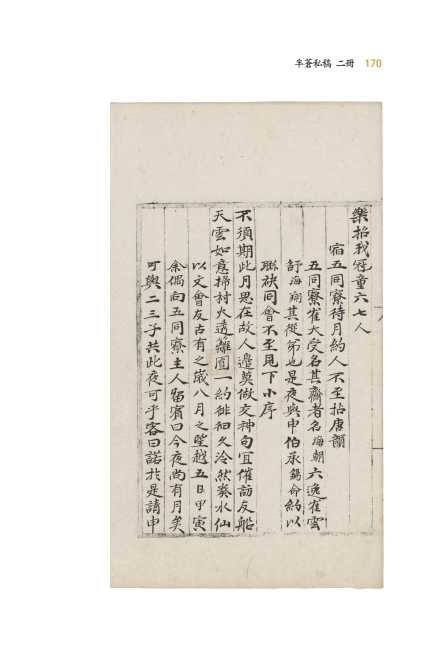 半蒼私稿 二冊 170
樂招我冠童六七人
宿五同寮待月約人不至拈唐韻
五同寮崔大受名其齋者名海朝六逸崔雲
舒海翔其從弟也是夜與申伯承錫命約以
聯袂同會不至見下小序
不須期此月思在故人邊莫做交神句宜催訪友船
天雲如意掃村火透籬圓一約徘徊久泠然奏水仙
以文會友古有之歲八月之望越五日甲寅
余偶向五同寮主人留賓曰今夜尚有月矣
可與二三子共此夜可乎客曰諾於是請申